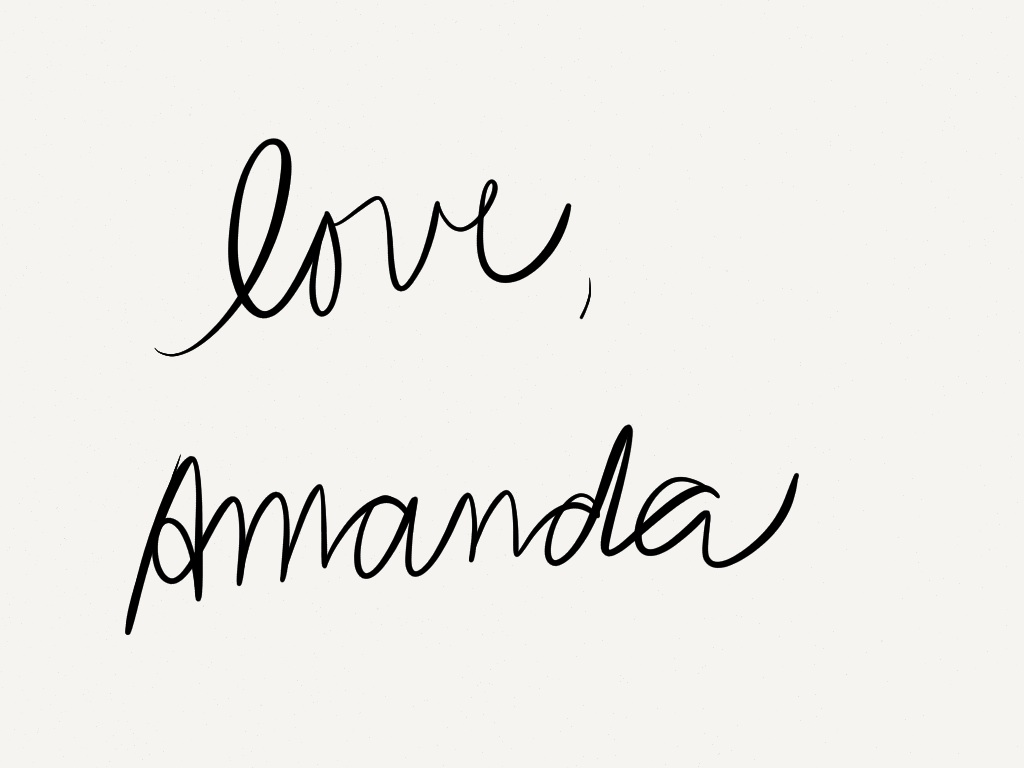 love,
Amanda